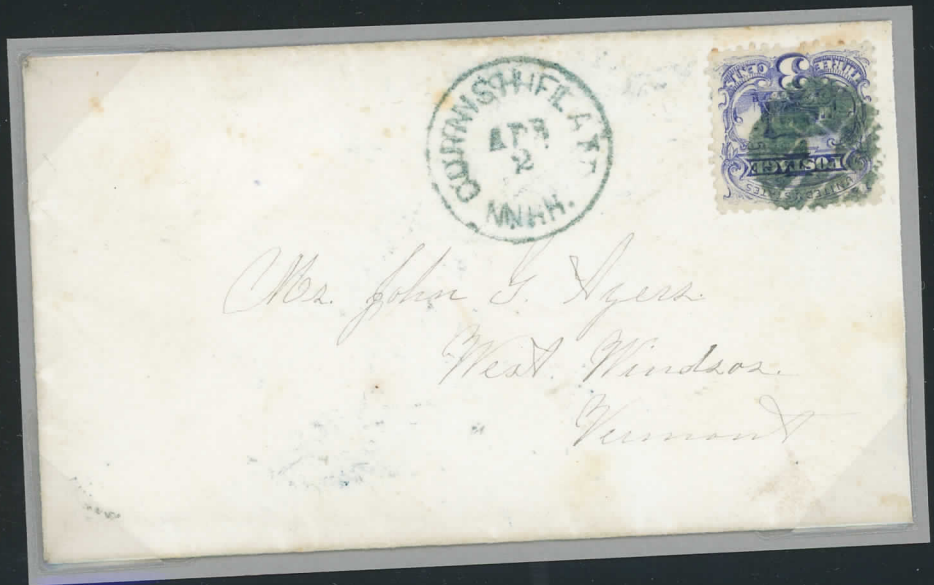 CORNISH FLAT
APR
2
N.H.
3
POSTAGE
Mr. John G. Ayers.
West. Windsor.
Vermont